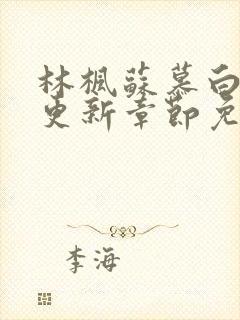 林楓蘇慕白
更新章節免
李海